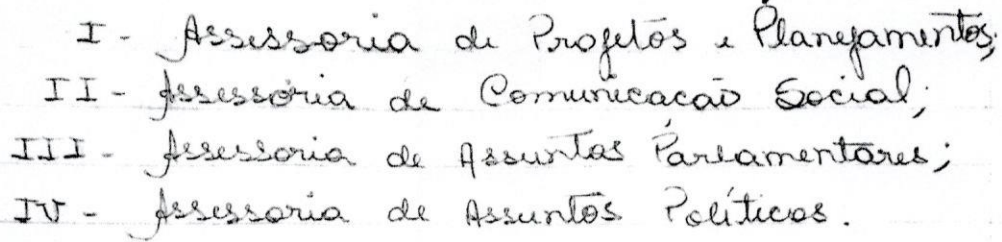 I - Assessoria de Projetos e Planejamentos;
II - Assessoria de Comunicação Social;
III - Assessoria de Assuntos Parlamentares;
IV - Assessoria de Assuntos Políticos.